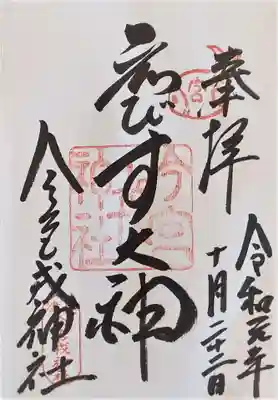 奉拝
令和元年
十月二十二日
ゑびす大神
今宮戎神社
今宮戎神社